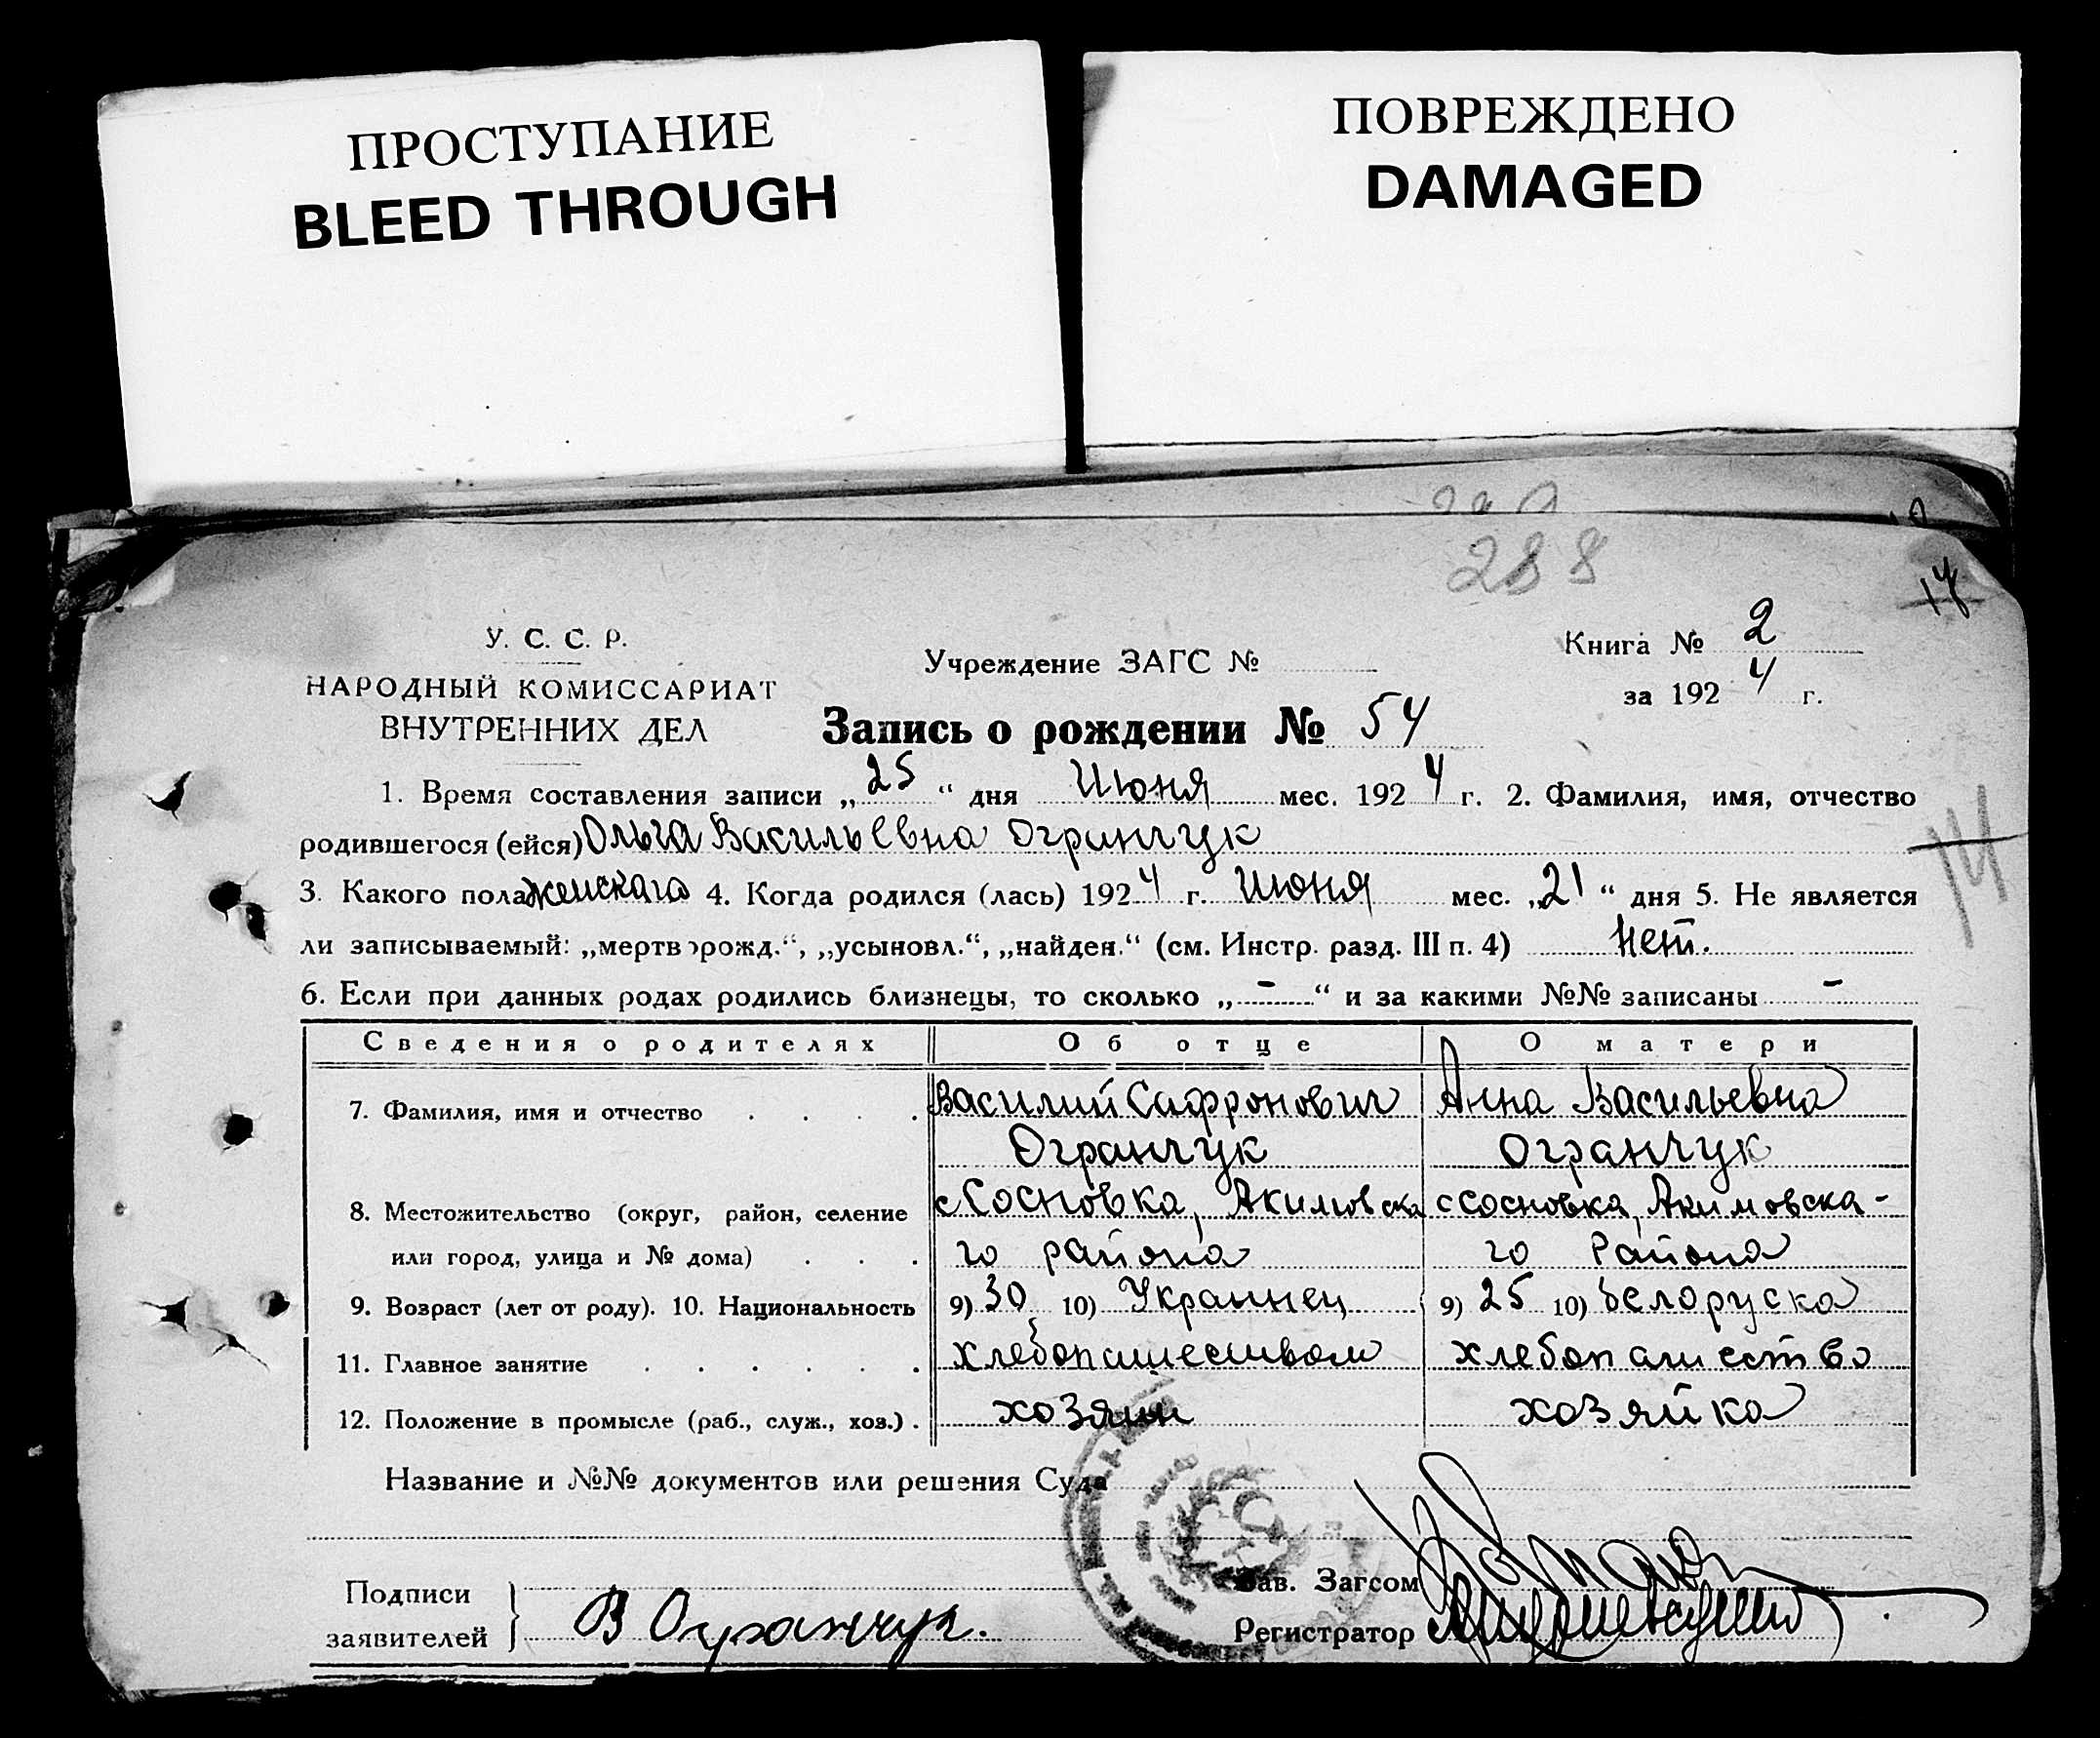 ПРОСТУПАНИЕ
BLEED THROUGH
ПОВРЕЖДЕНО
DAMAGED
288
14
У. С. С. Р.
НАРОДНЫЙ КОМИССАРИАТ
ВНУТРЕННИХ ДЕЛ
Учреждение ЗАГС №
Книга № 2
за 1924 г.
Запись о рождении № 54
1. Время составления записи „25“ дня Июня мес. 1924 г. 2. Фамилия, имя, отчество
родившегося (ейся) Ольга Васильевна Огранчук
3. Какого пола женскаго 4. Когда родился (лась) 1924 г. Июня мес. „21“ дня 5. Не является
ли записываемый: „мертворожд.“, „усыновл.“, „найден.“ (см. Инстр. разд. III п. 4) Нет.
6. Если при данных родах родились близнецы, то сколько „-“ и за какими №№ записаны -
Сведения о родителях Об отце О матери
7. Фамилия, имя и отчество . . . . Василий Сафронович Анна Васильевна
Огранчук Огранчук
8. Местожительство (округ, район, селение с Сосновка, Акимовска с Сосновка, Акимовска-
или город, улица и № дома) . . . го района го Района
9. Возраст (лет от роду). 10. Национальность 9) 30 10) Украинец 9) 25 10) Белоруска
11. Главное занятие . . . . . . хлебопашеством хлебопашество
12. Положение в промысле (раб., служ., хоз.) . хозяин хозяйка
Название и №№ документов или решения Суда
Подписи
заявителей
В Огранчук.
Зав. Загсом
Регистратор